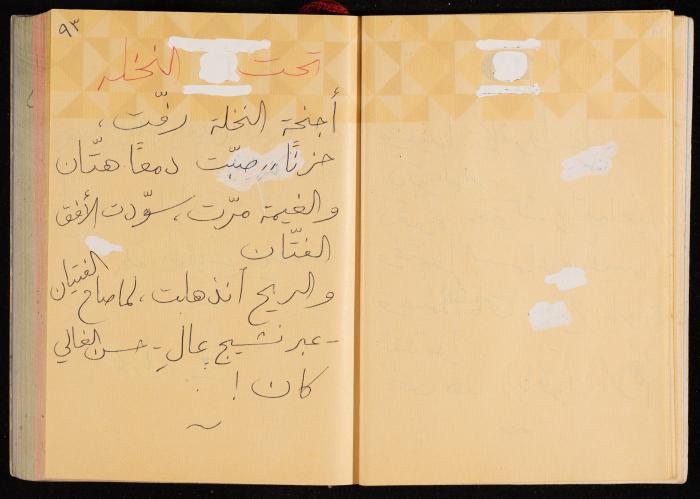 ٩٣
تحت النخلة
أجنحة النخلة رفّت،
حزنًا،، صبّت دمعًا هتّان
والغيمة مرّت، سوّدت الأفق
الفتّان
والريح أنذهلت، لما صاح الفتيان
- عبر نشيج عالٍ - حسن الغالي
كان !